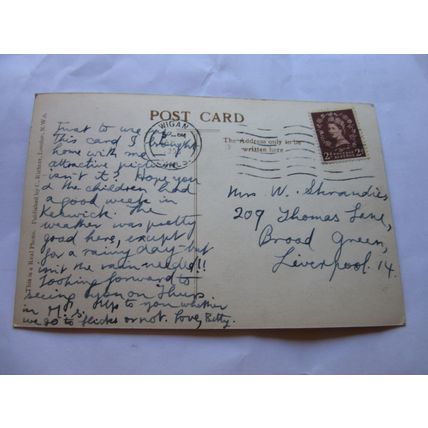 POST CARD
The Address only to be
written here
WIGAN
Just to use up
this card I brought
home with me
attractive picture
isn't it? Hope you
& the children had
a good week in
Keswick. The
weather was pretty
good here, except
for a rainy day - but
isn't the rain needed!!
Looking forward to
seeing you on Thurs
in Up to you whether
we go to flicks or not. Love, Betty.
Mrs W.
209 Thomas Lane,
Broad Green,
Liverpool. 14.
This is a Real Photo. Published by C. Richter, London, N.W.6.